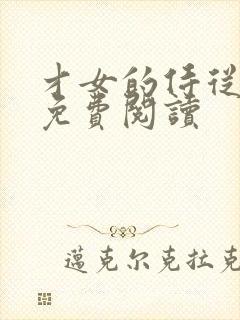 才女的侍從
免費閱讀
邁克尔克拉克